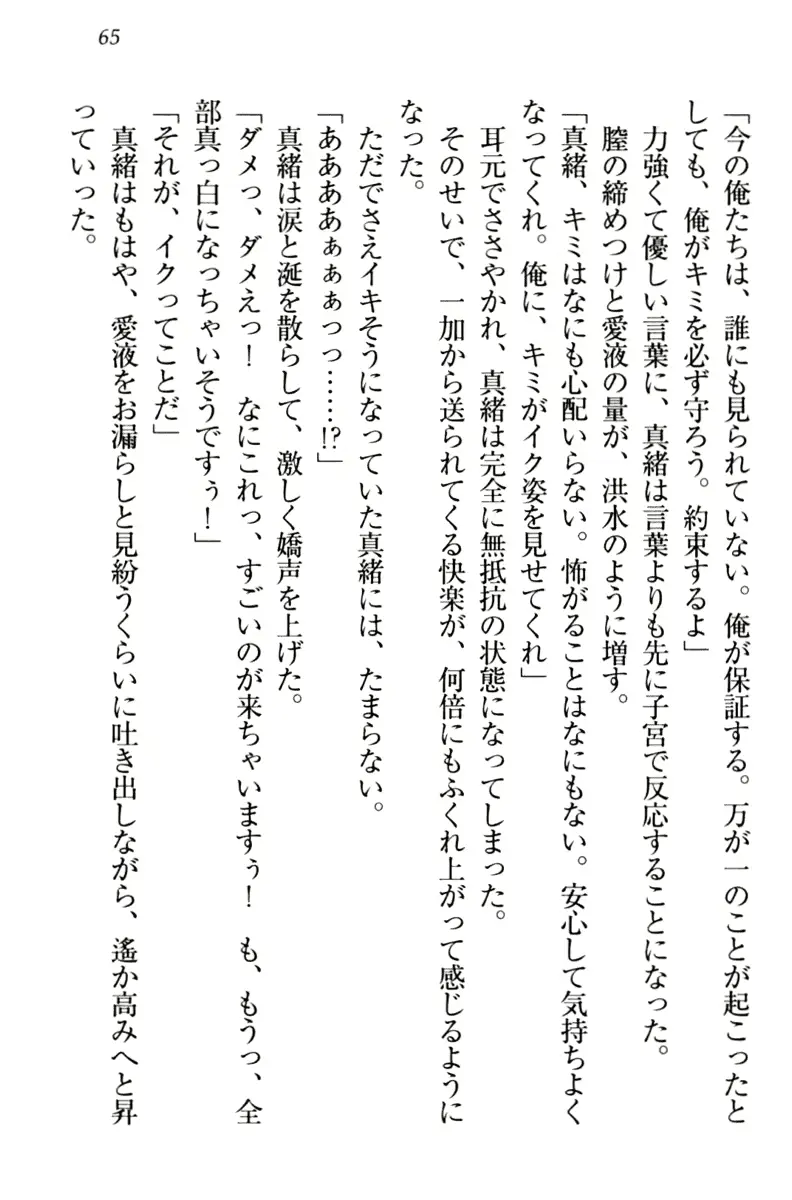 65
「今の俺たちは、誰にも見られていない。俺が保証する。万が一のことが起こったと
しても、俺がキミを必ず守ろう。約束するよ」
力強くて優しい言葉に、真緒は言葉よりも先に子宮で反応することになった。
膣の締めつけと愛液の量が、洪水のように増す。
「真緒、キミはなにも心配いらない。怖がることはなにもない。安心して気持ちよく
なってくれ。俺に、キミがイク姿を見せてくれ」
耳元でささやかれ、真緒は完全に無抵抗の状態になってしまった。
そのせいで、一加から送られてくる快楽が、何倍にもふくれ上がって感じるように
なった。
ただでさえイキそうになっていた真緒には、たまらない。
「ああああぁぁぁっっ……!?」
真緒は涙と涎を散らして、激しく嬌声を上げた。
「ダメっ、ダメえっ！　なにこれっ、すごいのが来ちゃいますぅ！　も、もうっ、全
部真っ白になっちゃいそうですぅ！」
「それが、イクってことだ」
真緒はもはや、愛液をお漏らしと見紛うくらいに吐き出しながら、遙か高みへと昇
っていった。